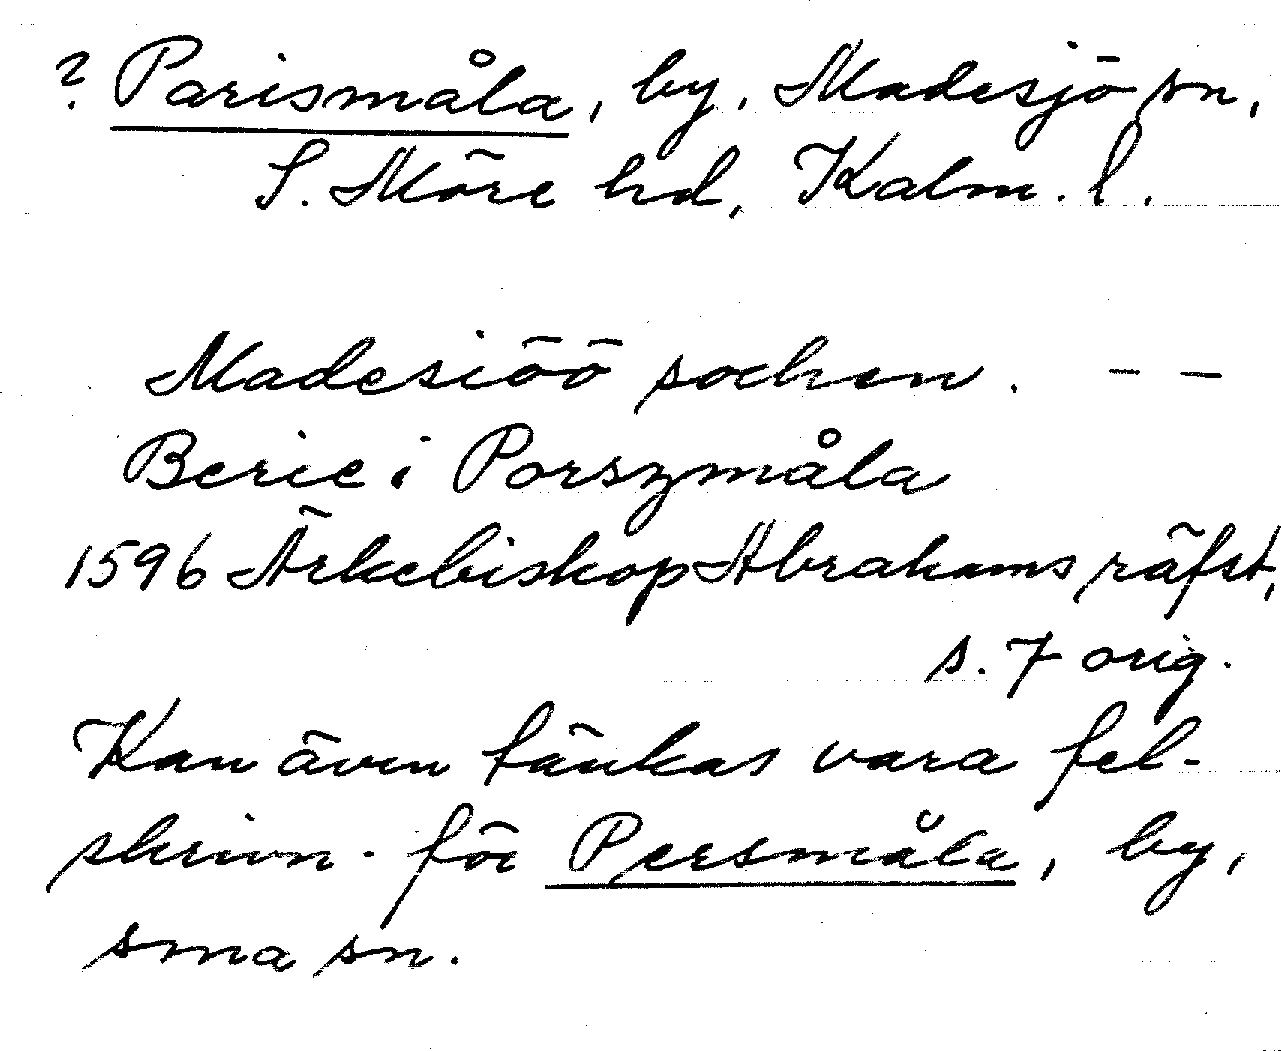 ? Parismåla, by, Madesjö sn,
S. Möre hd, Kalm. l.
Madesiöö sochen. - -
Berie i Porszmåla
1596 Ärkebiskop Abrahams räfst,
s. 7 orig.
Kan även tänkas vara fel-
skrivn. för Persmåla, by,
sma sn.